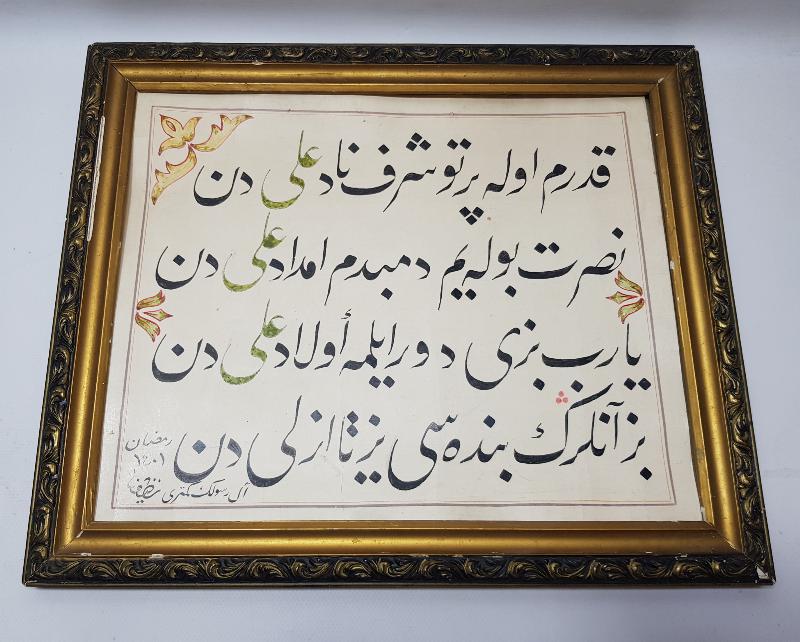 قدرم اوله پرتو شرف ناد علی دن
نصرت بوله یم دمبدم امداد علی دن
یارب بزی دور ایلمه أولاد علی دن
بز آنلرڭ بنده سی یز تا ازلی دن
رمضان
١٤٠١
آل رسولك كمتری